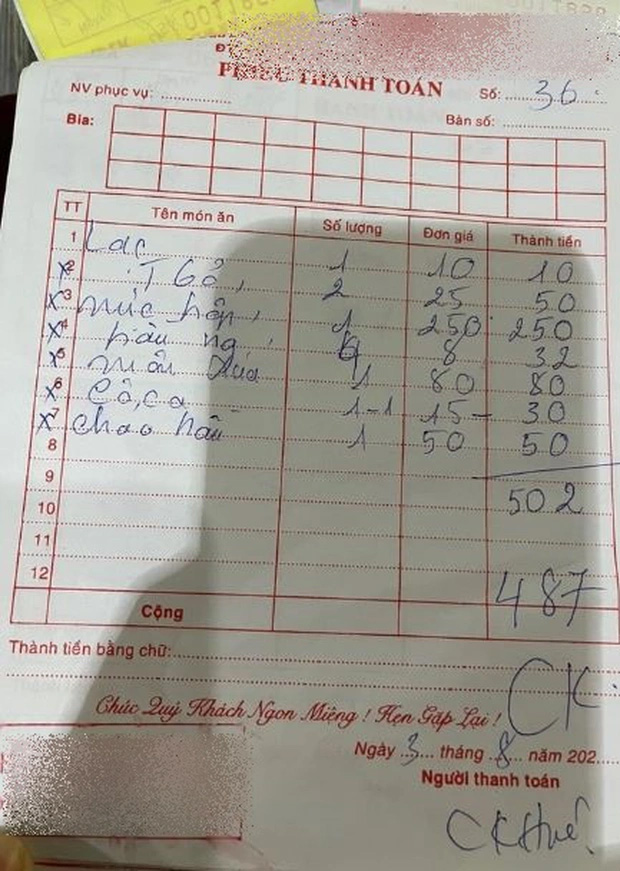 Đ
PHIẾU THANH TOÁN
Số: 36
NV phục vụ:
Bàn số:
Bia:
TT Tên món ăn Số lượng Đơn giá Thành tiền
1 Lạc 1 10 10
x 2 2 25 50
x 3 mực hấp 1 250 250
x 4 hàu 4 8 32
x 5 1 80 80
x 6 Cô, ca 1-1 15 - 30
x 7 chao hàu 1 50 50
8
9
502
10
11
12
487
Cộng
Thành tiền bằng chữ:
CK
Chúc Quý Khách Ngon Miệng ! Hẹn Gặp Lại !
Ngày 3 tháng 8 năm 202
Người thanh toán
CK Huế